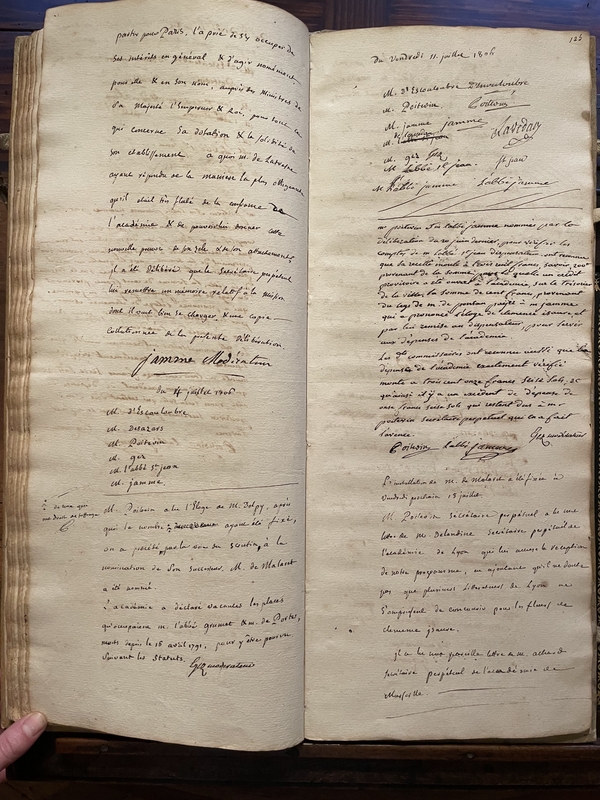 partir pour Paris, l'a prié de s'y occuper de
ses intérêts en général & d'agir nommément
pour elle & en son nom, auprès des Ministres de
Sa Majesté l'Empereur & Roi, pour tout ce
qui concerne Sa dotation & la solidité de
son etablissement. a quoi m. de Latresne
ayant répondu de la manière la plus obligeante
qu'il était très flatté de la confiance de
l'académie & de pouvoir lui donner cette
nouvelle preuve de son zèle & de son attachement,
il a été délibéré que le Secrétaire perpétuel
lui remettra un mémoire relatif à la mission
dont il veut bien se charger, & une copie
collationnée de la présente délibération.
Jamme Modérateur
du 4 juillet 1806
M. d'Escouloubre
M. desazars
M. Poitevin
M. gez
M. l'abbé St jean
M. jamme.
M. Poitevin a lu l'Éloge de M. Dolpy, après
quoi le nombre ayant été fixé,
on a procédé par la voie du scrutin, à la
nomination de son successeur. M. de Malaret
a été nommé.
l'académie a déclaré vacantes les places
qu'occupaient m. l'abbé gramet & m. de Portes,
morts depuis le 18 avril 1791, pour y être pourvu
suivant les Statuts.
Gez modérateur
125
Du Vendredi 11 juillet 1806
M. d'Escouloubre D'Escouloubre
M. Poitevin Poitevin
M. jamme jamme
M. Lavedan
M. gez Gez
M. l'abbé St jean. St jean
M. l'abbé jamme L'abbé jamme
m. poitevin et m. l'abbé jamme nommés par la
délibération du 20 juin dernier, pour vérifier les
comptes de m. l'abbé St jean dépositaire, ont reconnu
que la recette monte à trois cent francs, savoir 200f
provenant de la somme pour laquelle un crédit
provisoire a été ouvert à l'académie, sur le Trésorier
de la ville, la somme de cent francs, provenant
du legs de m. de pontan payée à m. jamme
qui a prononcé l'éloge de clemence isaure, et
par lui remise au dépositaire, pour servir
aux dépenses de l'académie.
Les Srs commissaires ont reconnu aussi que la
dépense de l'académie exactement vérifiée
monte à trois cent onze francs seize sols, et
qu'ainsi il y a un excédent de dépense de
onze francs seize sols qui restent dus à m.
poitevin secrétaire perpétuel qui en a fait
l'avance.
Gez modérateur
Poitevin L'abbé jamme
L'installation de m. de Malaret a été fixée à
vendredi prochain 18 juillet.
M. Poitevin Secrétaire perpétuel a lu une
lettre de M. Delandine Secrétaire perpétuel de
l'académie de Lyon qui lui accuse la réception
de notre programme, en ajoutant qu'il ne doute
pas que plusieurs littérateurs de Lyon ne
s'empressent de concourir pour les fleurs de
clemence isaure.
il a lu une pareille lettre de m. achard
secrétaire perpétuel de l'académie de
Marseille.